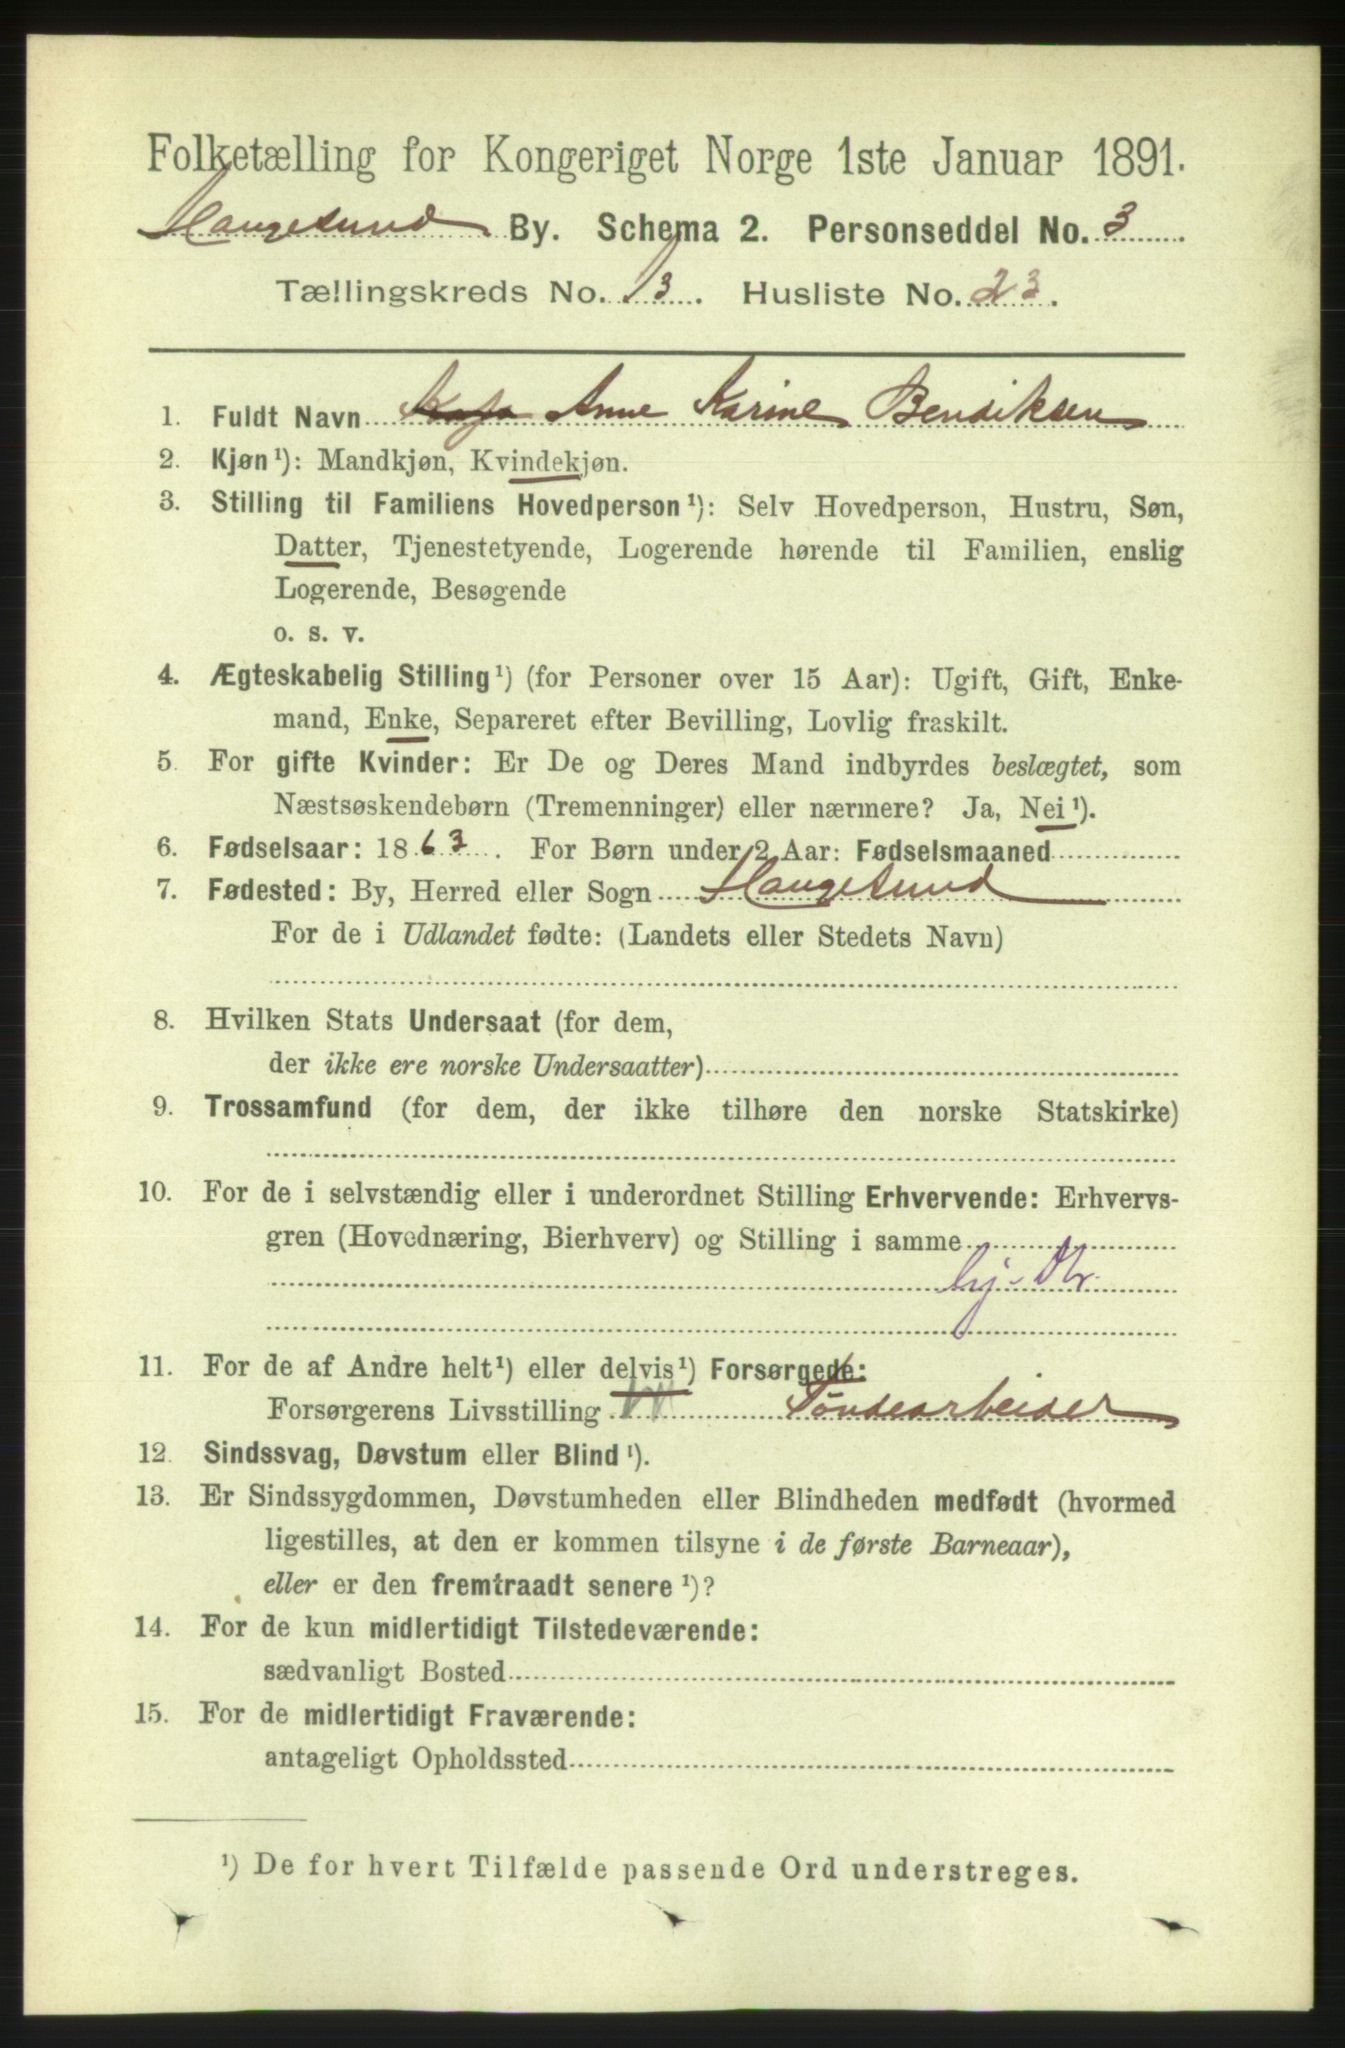 Folketælling for Kongeriget Norge 1ste Januar 1891.
Haugesund By. Schema 2. Personseddel No. 3
Tællingskreds No. 13. Husliste No. 23.
1. Fuldt Navn Kaja Anne Karine Bendiksen
2. Kjøn ¹): Mandkjøn, Kvindekjøn.
3. Stilling til Familiens Hovedperson ¹): Selv Hovedperson, Hustru, Søn,
Datter, Tjenestetyende, Logerende hørende til Familien, enslig
Logerende, Besøgende
o. s. v.
4. Ægteskabelig Stilling ¹) (for Personer over 15 Aar): Ugift, Gift, Enke-
mand, Enke, Separeret efter Bevilling, Lovlig fraskilt.
5. For gifte Kvinder: Er De og Deres Mand indbyrdes beslægtet, som
Næstsøskendebørn (Tremenninger) eller nærmere? Ja, Nei ¹).
6. Fødselsaar: 1863. For Børn under 2 Aar: Fødselsmaaned
7. Fødested: By, Herred eller Sogn Haugesund
For de i Udlandet fødte: (Landets eller Stedets Navn)
8. Hvilken Stats Undersaat (for dem,
der ikke ere norske Undersaatter)
9. Trossamfund (for dem, der ikke tilhøre den norske Statskirke)
10. For de i selvstændig eller i underordnet Stilling Erhvervende: Erhvervs-
gren (Hovednæring, Bierhverv) og Stilling i samme
11. For de af Andre helt ¹) eller delvis ¹) Forsørgede:
Forsørgerens Livsstilling Tøndearbeider
12. Sindssvag, Døvstum eller Blind ¹).
13. Er Sindssygdommen, Døvstumheden eller Blindheden medfødt (hvormed
ligestilles, at den er kommen tilsyne i de første Barneaar),
eller er den fremtraadt senere ¹)?
14. For de kun midlertidigt Tilstedeværende:
sædvanligt Bosted
15. For de midlertidigt Fraværende:
antageligt Opholdssted
¹) De for hvert Tilfælde passende Ord understreges.